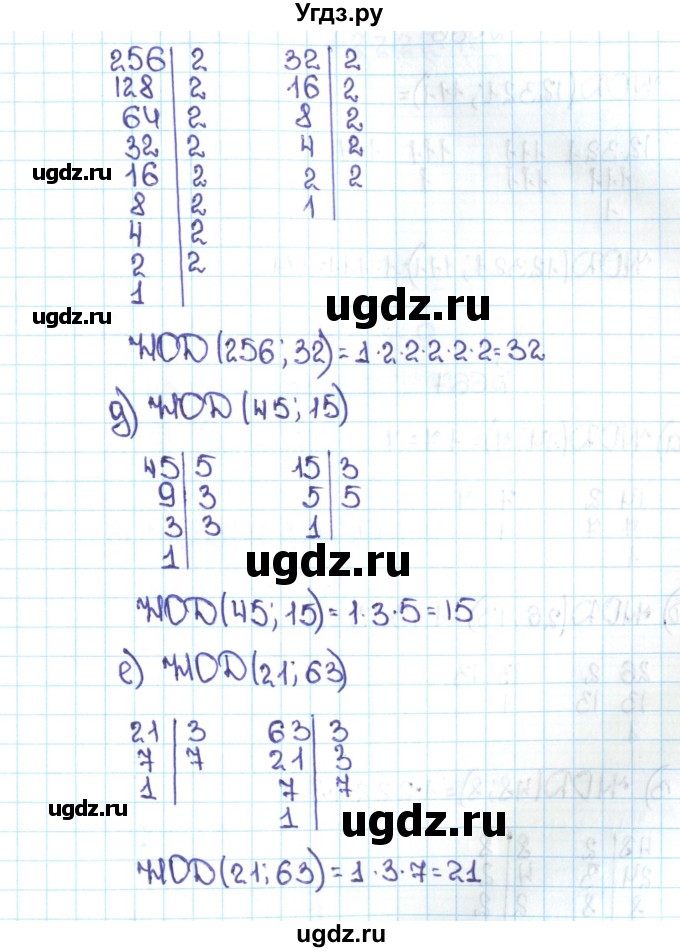 Угдз.ру
256 | 2 32 | 2
128 | 2 16 | 2
64 | 2 8 | 2
32 | 2 4 | 2
ugdz.ru
16 | 2 2 | 2
8 | 2 1 |
4 | 2
2 | 2
1 |
ugdz.ru
ugdz.ru
НОД(256; 32) = 1·2·2·2·2·2 = 32
д) НОД(45; 15)
45 | 5 15 | 3
9 | 3 5 | 5
3 | 3 1 |
1 |
ugdz.ru
НОД(45; 15) = 1·3·5 = 15
е) НОД(21; 63)
21 | 3 63 | 3
7 | 7 21 | 3
1 | 7 | 7
1 |
ugdz.ru
ugdz.ru
НОД(21; 63) = 1·3·7 = 21